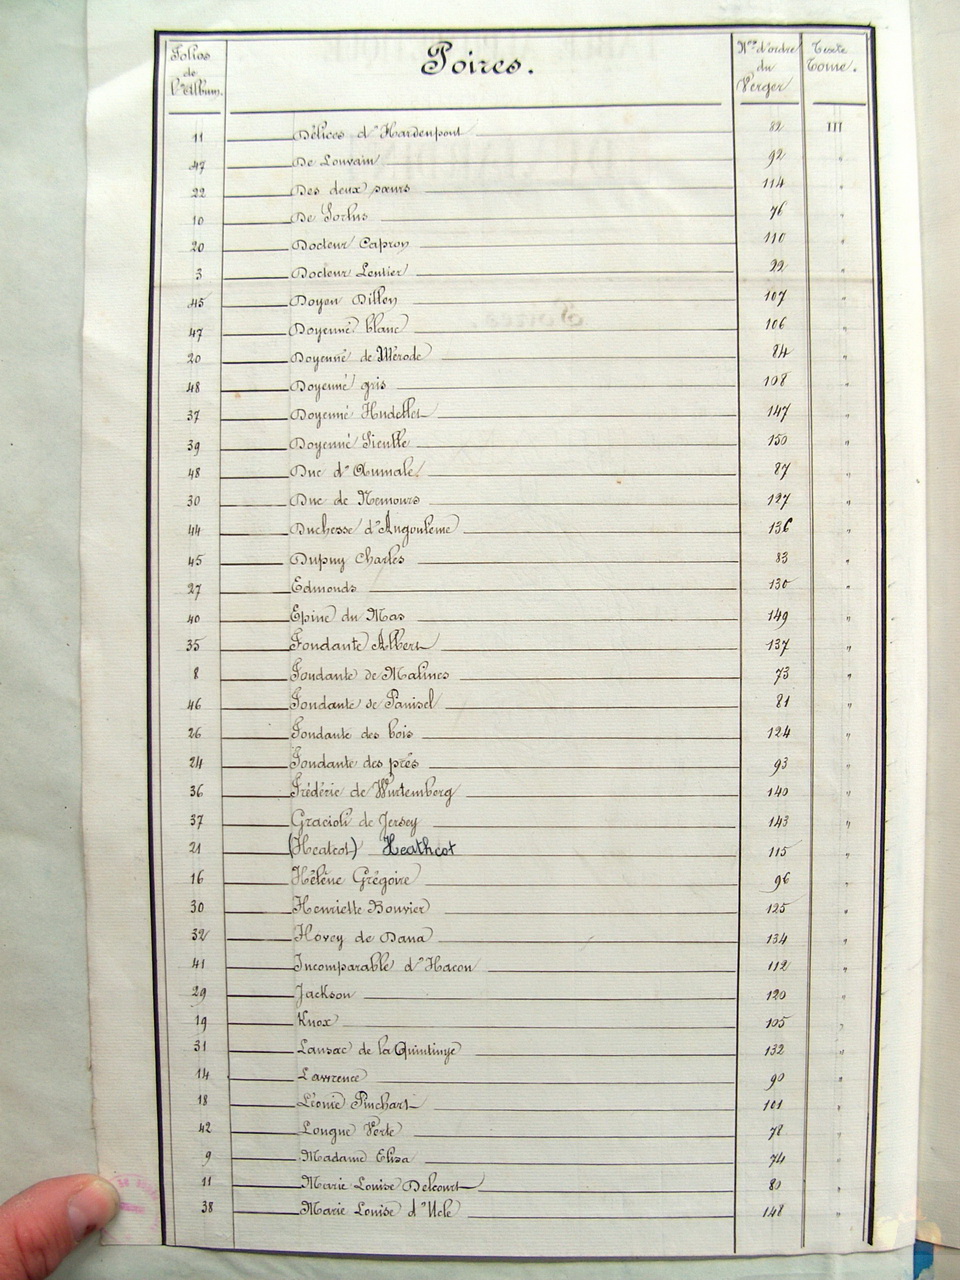 Folios de l'Album. Poires. Nos d'ordre du Verger Texte Tome.
11 Délices d'Hardenpont 82 III
47 De Louvain 92 "
22 Des deux sœurs 114 "
10 De Sorlus 76 "
20 Docteur Capron 110 "
3 Docteur Lentier 99 "
45 Doyen Dillen 107 "
47 Doyenné blanc 106 "
20 Doyenné de Mérode 84 "
48 Doyenné gris 108 "
37 Doyenné Hudellet 147 "
39 Doyenné Sieulle 150 "
48 Duc d'Aumale 87 "
30 Duc de Nemours 127 "
44 Duchesse d'Angoulême 136 "
45 Dupuy Charles 83 "
27 Edmonds 130 "
40 Epine du Mas 149 "
35 Fondante Albert 137 "
8 Fondante de Malines 73 "
46 Fondante de Panisel 81 "
26 Fondante des bois 124 "
24 Fondante des prés 93 "
36 Frédéric de Wurtemberg 140 "
37 Gracioli de Jersey 143 "
21 (Heatcot) Heathcot 115 "
16 Hélène Grégoire 96 "
30 Henriette Bouvier 125 "
32 Hovey de Dana 134 "
41 Incomparable d'Hacon 112 "
29 Jackson 120 "
19 Knox 105 "
31 Lansac de la Quintinye 132 "
14 Lawrence 90 "
18 Léonie Pinchart 101 "
42 Longue Verte 78 "
9 Madame Elisa 74 "
11 Marie Louise Delcourt 80 "
38 Marie Louise d'Ucle 148 "